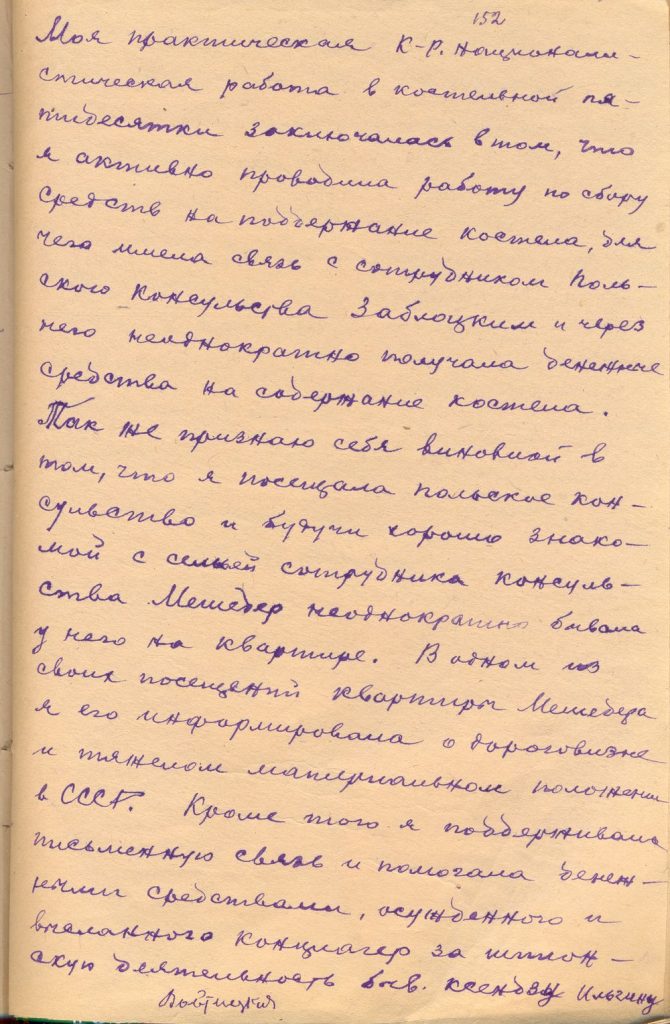 152
Моя практическая К-Р. национали-
стическая работа в костельной пя-
тидесятки заключалась в том, что
я активно проводила работу по сбору
средств на поддержание костела, для
чего имела связь с сотрудником Поль-
ского консульства Заблоцким и через
него неоднократно получала денежные
средства на содержание костела.
Так же признаю себя виновной в
том, что я посещала польское кон-
сульство и будучи хорошо знако-
мой с семьей сотрудника консуль-
ства Мешебер неоднократно бывала
у него на квартире. В одном из
своих посещений квартиры Мешебера
я его информировала о дороговизне
и тяжелом материальном положении
в СССР. Кроме того я поддерживала
письменную связь и помогала денеж-
ными средствами, осужденного и
в концлагер за шпион-
скую деятельность быв. ксендзу Ильгину